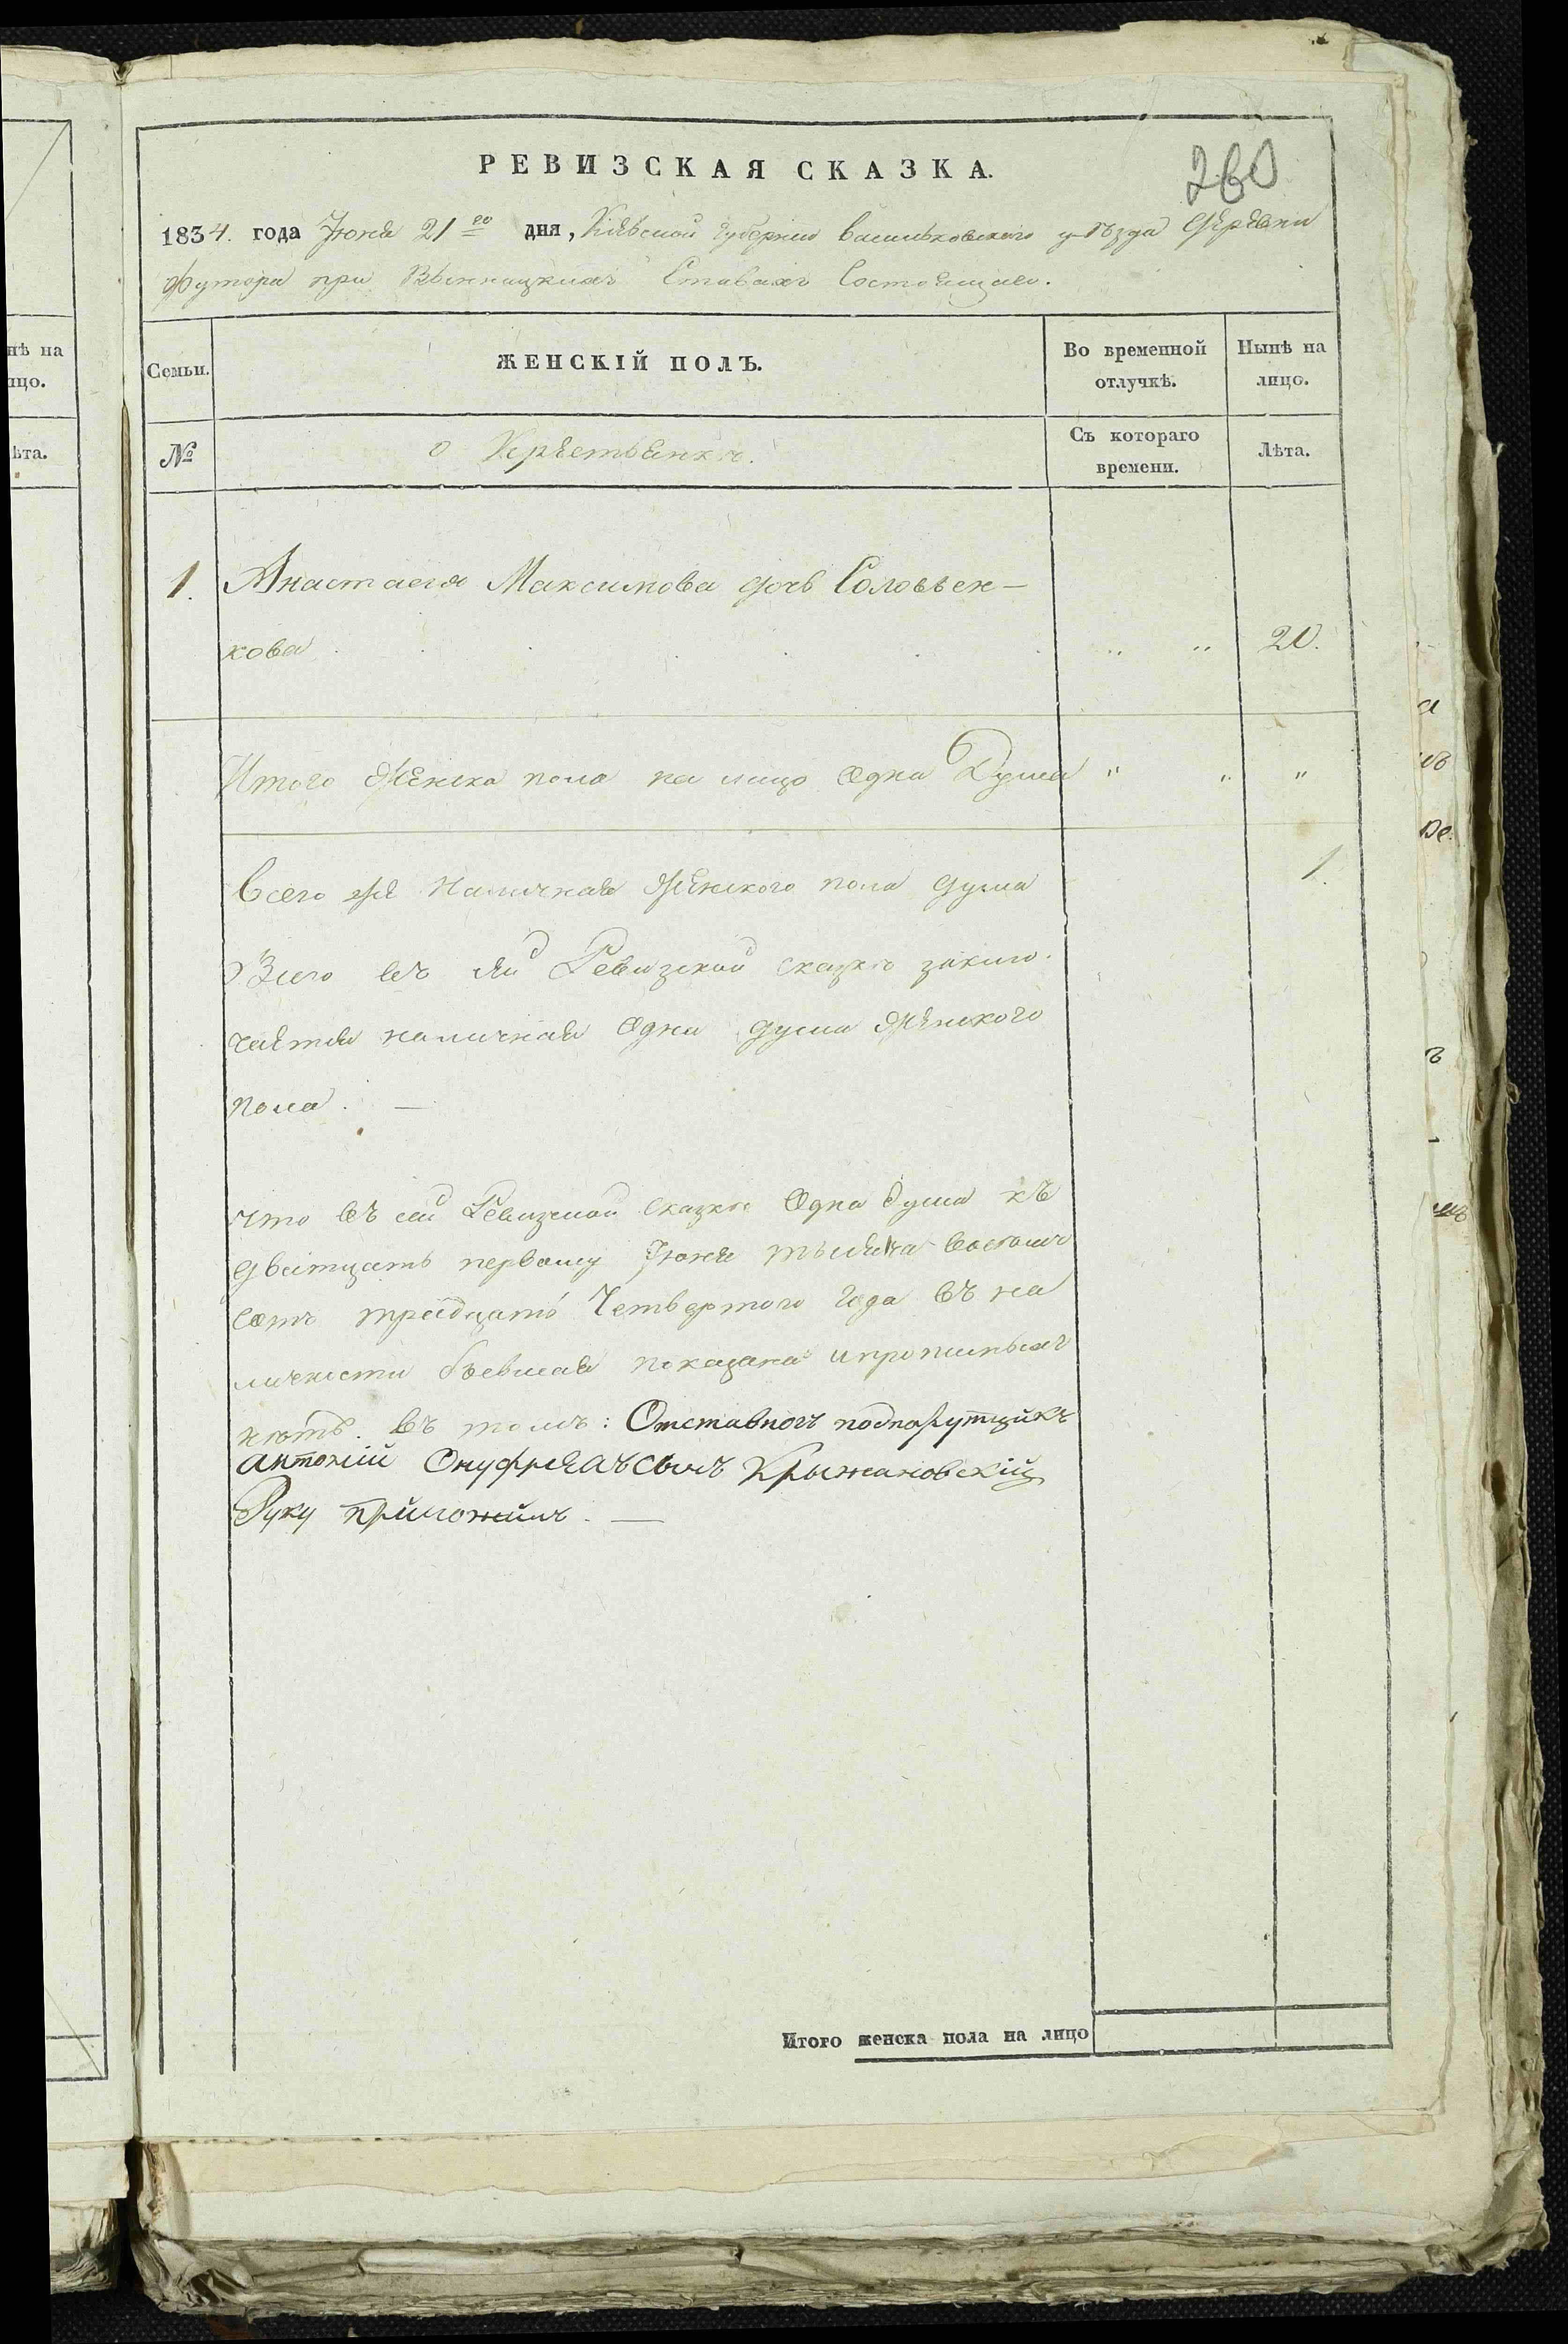 РЕВИЗСКАЯ СКАЗКА.
260
1834. года Июня 21го дня, Кіевской губерніи васильковского уѣзда деревни
футора при Винницкихъ Ставахъ Состоящаго.
Семьи. ЖЕНСКІЙ ПОЛЪ. Во временной отлучкѣ. Нынѣ на лицо.
№ о Крестьянкѣ. Съ котораго времени. Лѣта.
1. Анастасия Максимова дочь Соловьен-
кова . . . . . . „ „ 20.
Итого Женска пола на лицо Одна Душа „ „ „
Всего же Наличная Женского пола душа 1.
Всего въ сей Ревизской сказкѣ заклю-
чается наличная Одна душа Женского
пола. —
Что въ сей Ревизской Сказкѣ Одна душа къ
дватцать первому Июня тысяча восемъ
сотъ тридцать Четвертого Года въ на
личности бывшая показана и прописныхъ
нѣтъ. Въ томъ: Отставной подпорутщикъ
антоній Онуфріевъ сынъ Крыжановскій
Руку приложилъ. —
Итого женска пола на лицо
нѣ на
ицо.
ѣта.